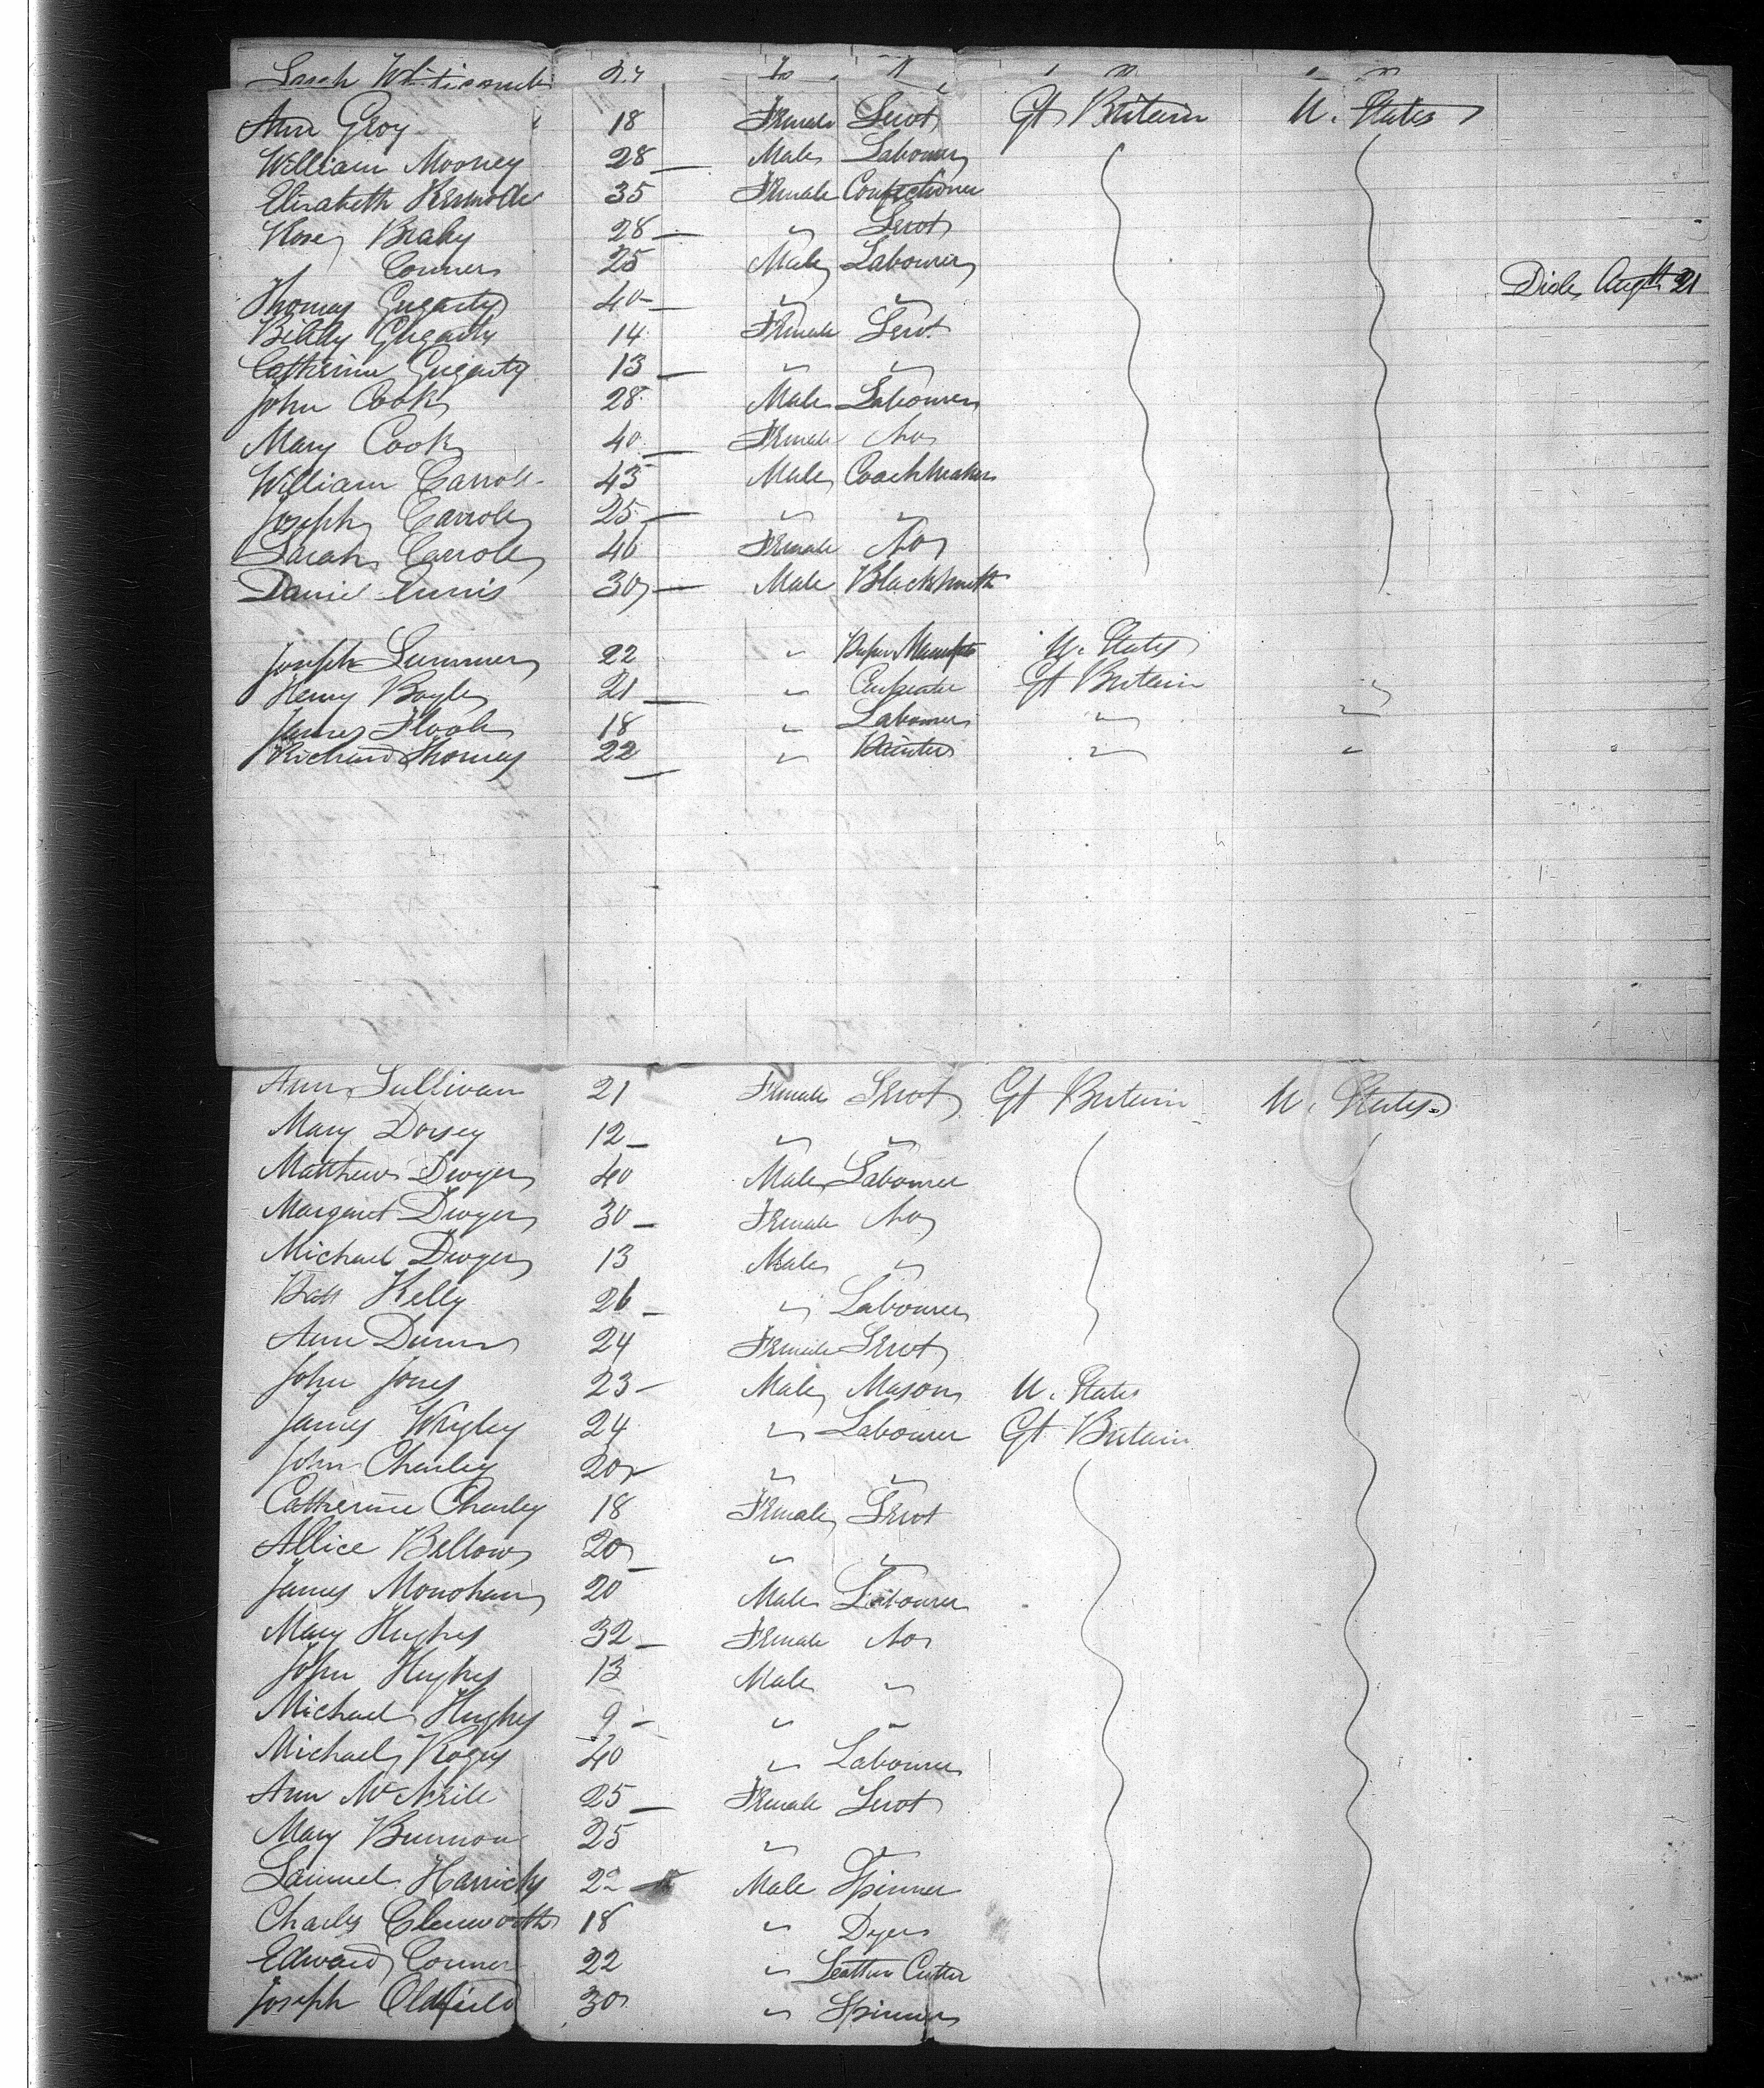 Sarah 24
Ann Groy 18 Female Servt Gt Britain U. States
William Mooney 28 Male Labourer
Elizabeth 35 Female Confectioner
Rose 28 " Servt
Conner 25 Male Labourer Died Augt 21
Thomas Gugarty 40 " "
Biddy Gugarty 14 Female Servt
Catherine Gugarty 13 " "
John Cook 28 Male Labourer
Mary Cook 40 Female No
William Carroll 43 Male Coachmaker
Joseph Carroll 25 " "
Sarah Carroll 46 Female No
Daniel Ennis 30 Male Blacksmith
Joseph Summer 22 " Paper U. States
Henry Boyle 21 " Carpenter Gt Britain "
James Flook 18 " Labourer " "
Richard Thomas 22 " Painter " "
Ann Sullivan 21 Female Servt Gt Britain U. States
Mary Dorsey 12 " "
Matthew Dwyer 40 Male Labourer
Margaret Dwyer 30 Female No
Michael Dwyer 13 Male "
Kelly 26 " Labourer
Ann Dunn 24 Female Servt
John Jones 23 Male Mason U. States
James Wrigley 24 " Labourer Gt Britain
John Charley 20 " "
Catherine Charley 18 Female Servt
Allice Bellow 20 " "
James Monohan 20 Male Labourer
Mary Hughes 32 Female No
John Hughes 13 Male "
Michael Hughes 9 " "
Michael Rogers 40 " Labourer
Ann McNeile 25 Female Servt
Mary 25 " "
Samuel 22 Male Spinner
Charles 18 " Dyer
Edward Conner 22 " Leather Cutter
Joseph Oldfield 30 " Spinner